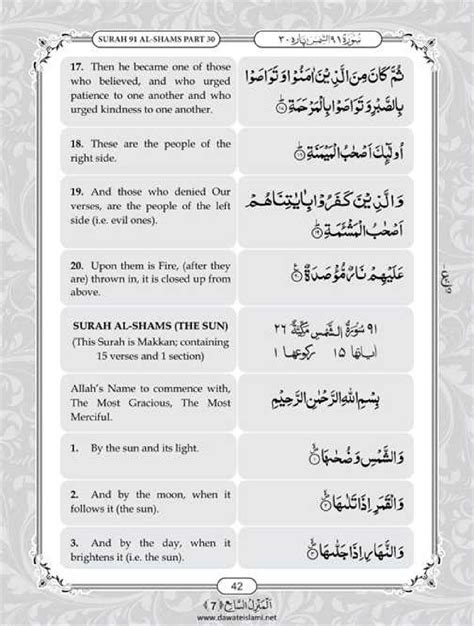 SURAH 91 AL-SHAMS PART 30
سُوْرَةُ ٩١ الشَّمْس پاره ٣٠
17. Then he became one of those
who believed, and who urged
patience to one another and who
urged kindness to one another.
ثُمَّ كَانَ مِنَ الَّذِيْنَ اٰمَنُوْا وَ تَوَاصَوْا
بِالصَّبْرِ وَ تَوَاصَوْا بِالْمَرْحَمَةِ ﴿١٧﴾
18. These are the people of the
right side.
اُولٰٓئِكَ اَصْحٰبُ الْمَيْمَنَةِ ﴿١٨﴾
19. And those who denied Our
verses, are the people of the left
side (i.e. evil ones).
وَ الَّذِيْنَ كَفَرُوْا بِاٰيٰتِنَا هُمْ
اَصْحٰبُ الْمَشْـَٔمَةِ ﴿١٩﴾
20. Upon them is Fire, (after they
are) thrown in, it is closed up from
above.
عَلَيْهِمْ نَارٌ مُّؤْصَدَةٌ ﴿٢٠﴾
SURAH AL-SHAMS (THE SUN)
(This Surah is Makkan; containing
15 verses and 1 section)
٩١ سُوْرَةُ الشَّمْسِ مَكِّيَّةٌ ٢٦
اٰیاتها ١٥ ركوعها ١
Allah's Name to commence with,
The Most Gracious, The Most
Merciful.
بِسْمِ اللّٰهِ الرَّحْمٰنِ الرَّحِيْمِ
1. By the sun and its light.
وَ الشَّمْسِ وَ ضُحٰىهَا ﴿١﴾
2. And by the moon, when it
follows it (the sun).
وَ الْقَمَرِ اِذَا تَلٰىهَا ﴿٢﴾
3. And by the day, when it
brightens it (i.e. the sun).
وَ النَّهَارِ اِذَا جَلّٰىهَا ﴿٣﴾
42
اَلْمَنْزِلُ السَّابِع ﴿7﴾
www.dawateislami.net